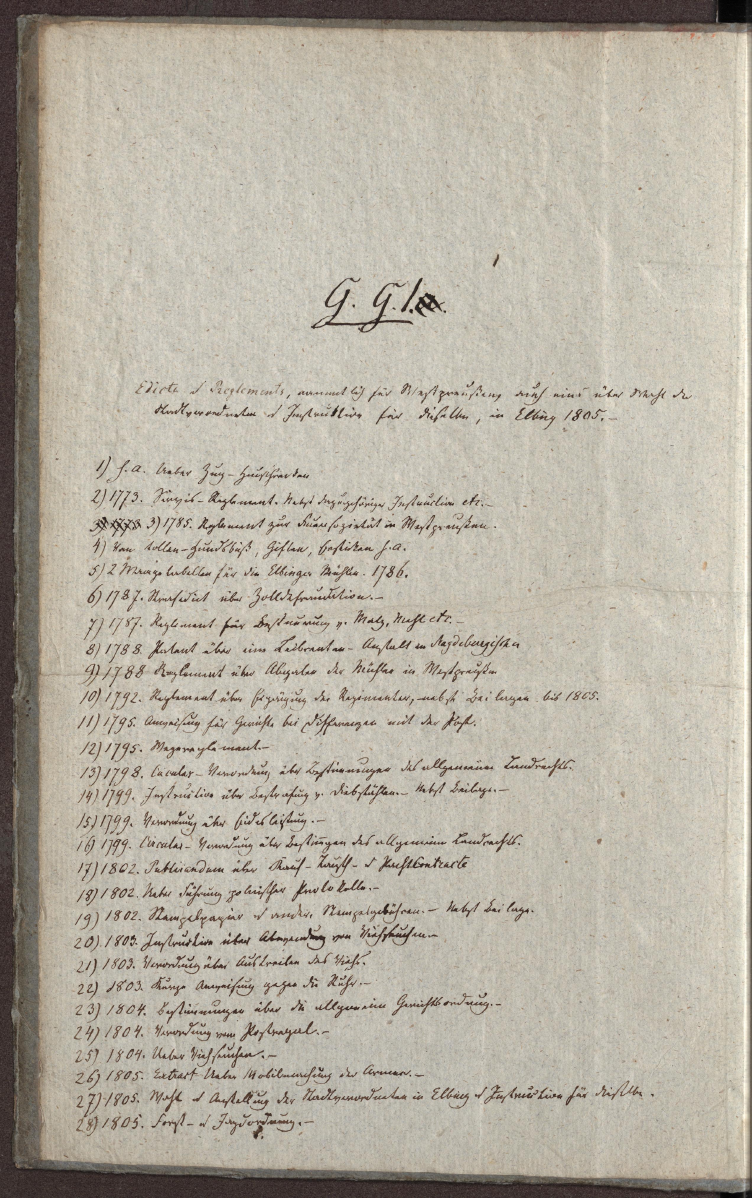 G. G. 1.
Edicte & Reglements, sammtlich für Westpreußen, auch eins über Wahl der
Stadtverordneten & Instruktion für dieselben, in Elbing 1805.–
1) s.a. Ueber Zug-
2) 1773. Servis-Reglement. Nebst dazugehöriger Instruction etc.–
3) 1785. Reglement zur Feuersozietät in Westpreußen.
4) Vom tollen-Hundsbiß, Giften, s.a.
5) 2 tabellen für die Elbinger Mühlen. 1786.
6) 1787. Strafedict über Zolldefraudation.–
7) 1787. Reglement für Besteuerung v. Malz, Mehl etc.–
8) 1788. Patent über eine Leibrenten-Anstalt im Magdeburgischen
9) 1788 Reglement über Abgaben der Mühlen in Westpreußen
10) 1792. Reglement über Ergänzung der Regimenter, nebst Beilagen bis 1805.
11) 1795. Anweisung für Gerichte bei Differenzen mit der Post.
12) 1795. Wegereglement.–
13) 1798. Circular-Verordnung über Bestimmungen des allgemeinen Landrechts.
14) 1799. Instruction über Bestrafung v. Diebstählen.– Nebst Beilage.–
15) 1799. Verordnung über Eidesleistung.–
16) 1799. Circular-Verordnung über Bestimmungen des allgemeinen Landrechts.
17) 1802. Publicandum über Kauf-Tausch- & Pachtcontracte
18) 1802. Ueber Führung polnischer Protokolle.–
19) 1802. Stempelpapier & andere Stempelgebühren.– Nebst Beilage.
20) 1803. Instruction über Abwendung von Viehseuchen.–
21) 1803. Verordnung über Austreiben des Viehs.
22) 1803. Kurze Anweisung gegen die Ruhr.–
23) 1804. Bestimmungen über die allgemeine Gerichtsordnung.–
24) 1804. Verordnung vom Postregal.–
25) 1804. Ueber Viehseuchen.–
26) 1805. Extract Ueber Mobilmachung der Armee.–
27) 1805. Wahl & Anstellung der Stadtverordneten in Elbing & Instruction für dieselben.
28) 1805. Forst- & Jagdordnung.–